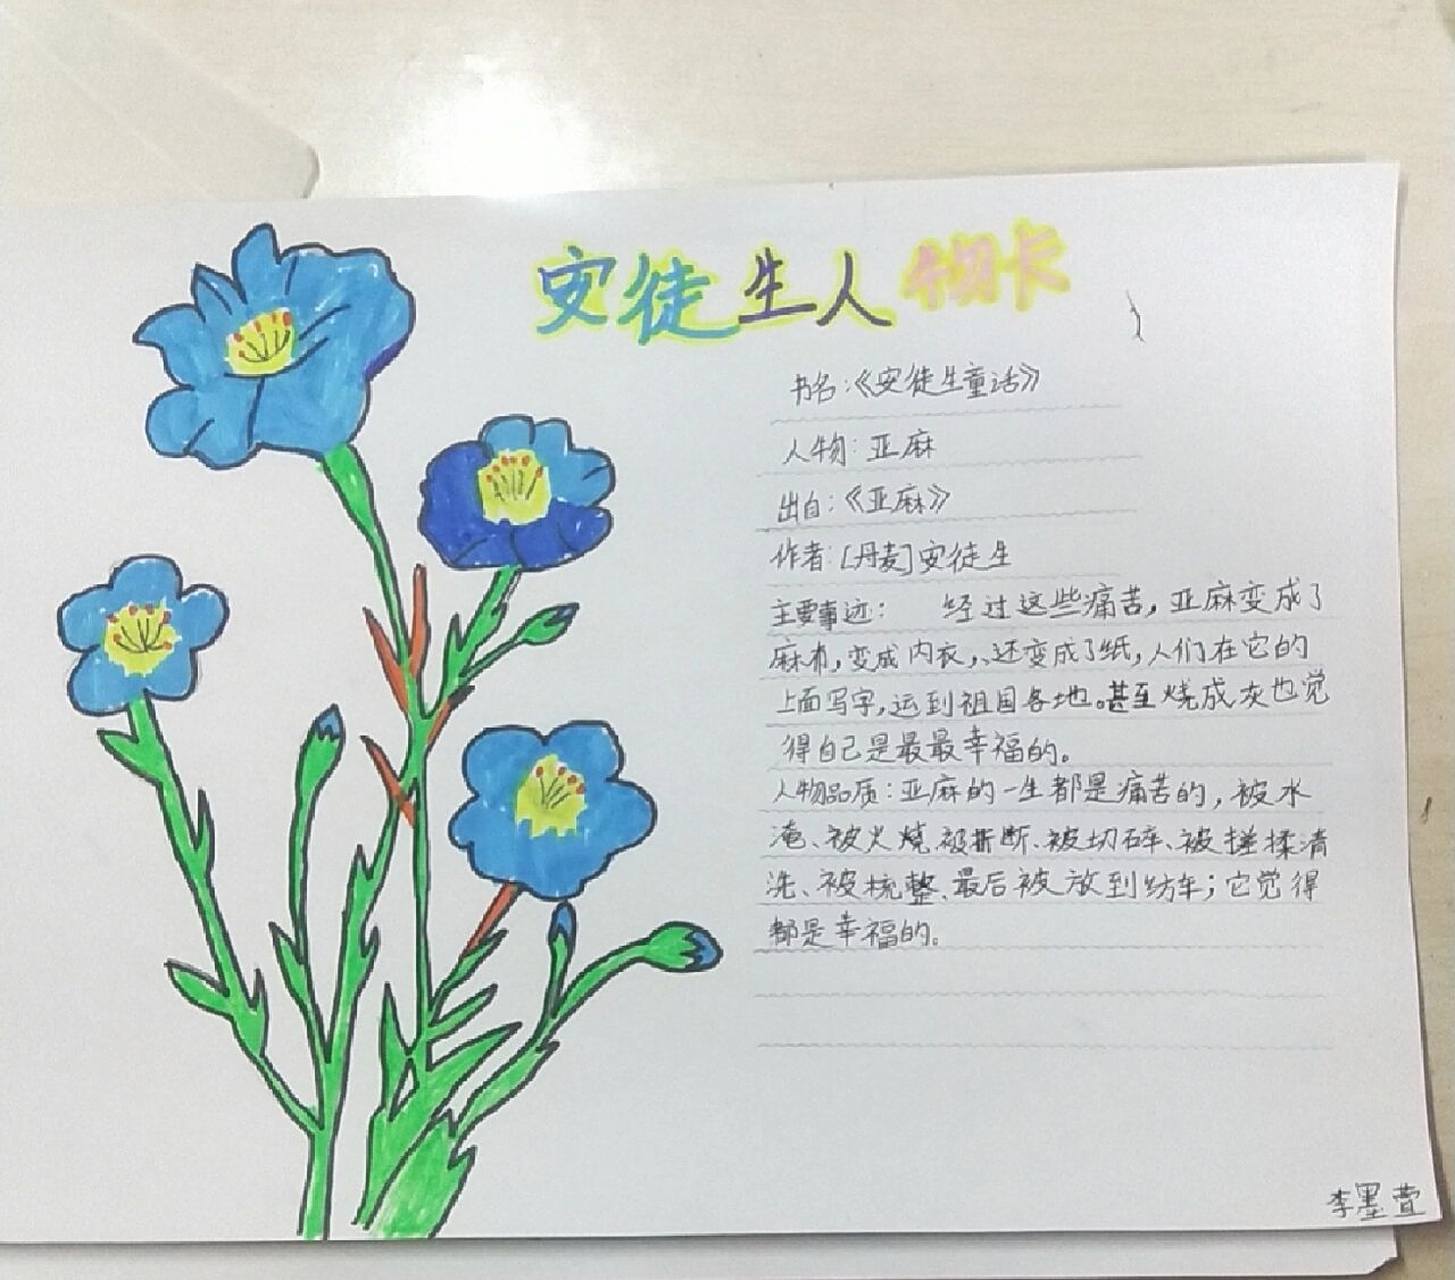 安徒生人物卡
书名:《安徒生童话》
人物:亚麻
出自:《亚麻》
作者:[丹麦]安徒生
主要事迹: 经过这些痛苦,亚麻变成了
麻布,变成内衣,、还变成了纸,人们在它的
上面写字,运到祖国各地。甚至烧成灰也觉
得自己是最最幸福的。
人物品质:亚麻的一生都是痛苦的,被水
淹、被火烧、被折断、被切碎、被搓揉清
洗、被梳整、最后被放到纺车;它觉得
都是幸福的。
李墨萱